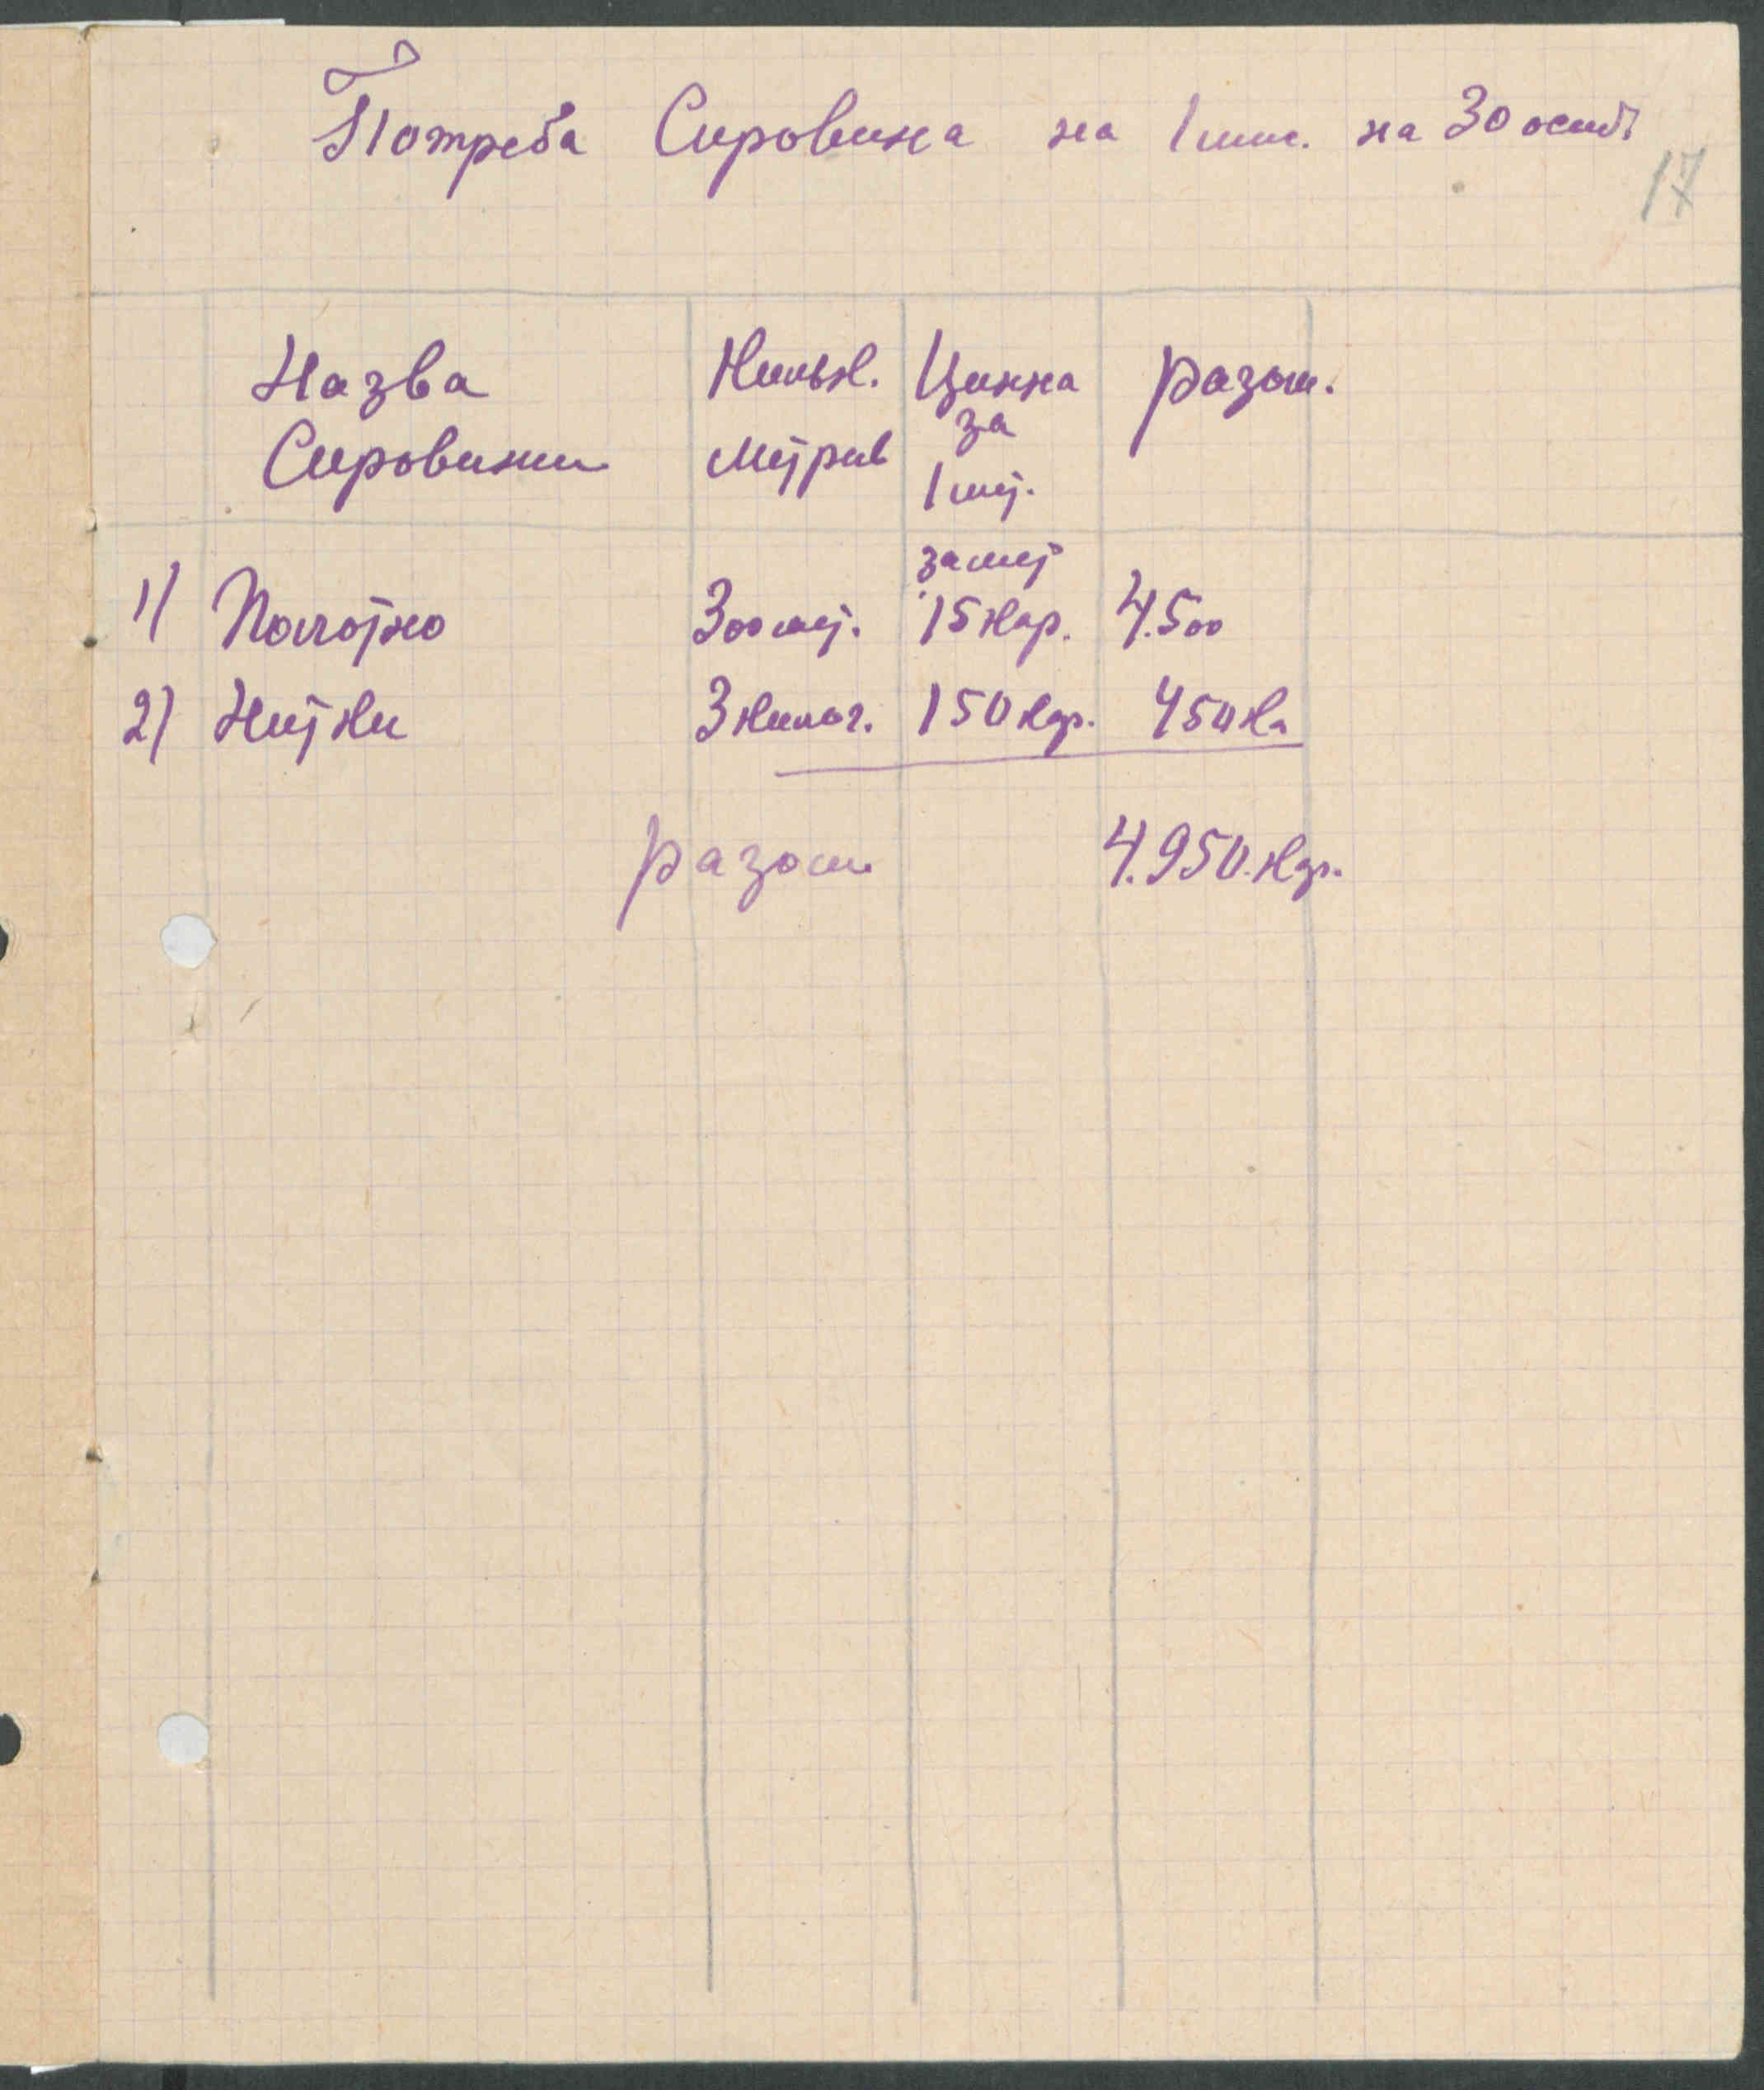 Потреба Сировина на 1 міс. на 30 осиб
17
Назва Кильк. Цинна разом.
Сировини метрив за
1 мт.
за мт
1) Полотно 300 мт. 15 кар. 4.500
2) Нитки 3 килог. 150 кар. 450 ка
разом 4.950. кар.